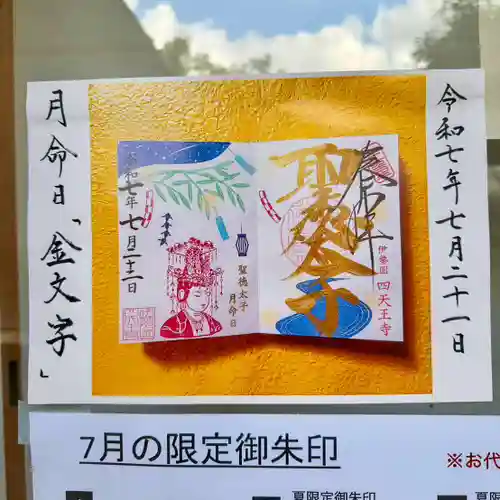 令和七年七月二十一日
月命日「金文字」
奉拝
聖徳太子
伊勢国 四天王寺
令和七年 七月二十二日
聖徳太子
月命日
7月の限定御朱印
※お代
夏限定御朱印
夏限